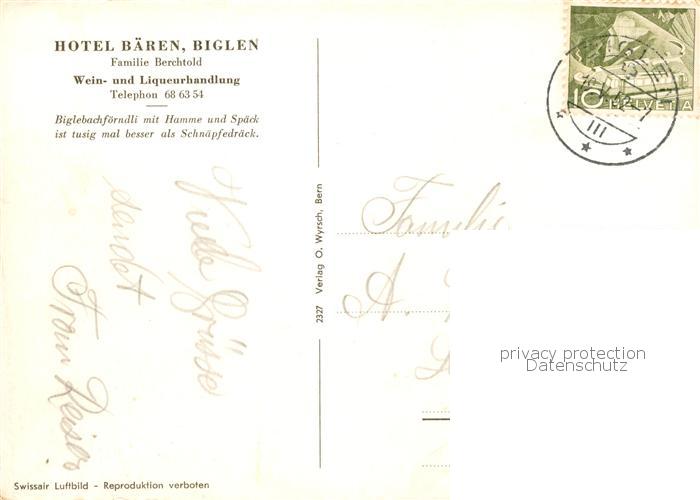 HOTEL BÄREN, BIGLEN
Familie Berchtold
Wein- und Liqueurhandlung
Telephon 68 63 54
Biglebachförndli mit Hamme und Späck
ist tusig mal besser als Schnäpfedräck.
Viele Grüsse
sendet
2327 Verlag O. Wyrsch, Bern
10 HELVETIA
BIGLEN
III
Familie
A.
privacy protection
Datenschutz
Swissair Luftbild - Reproduktion verboten